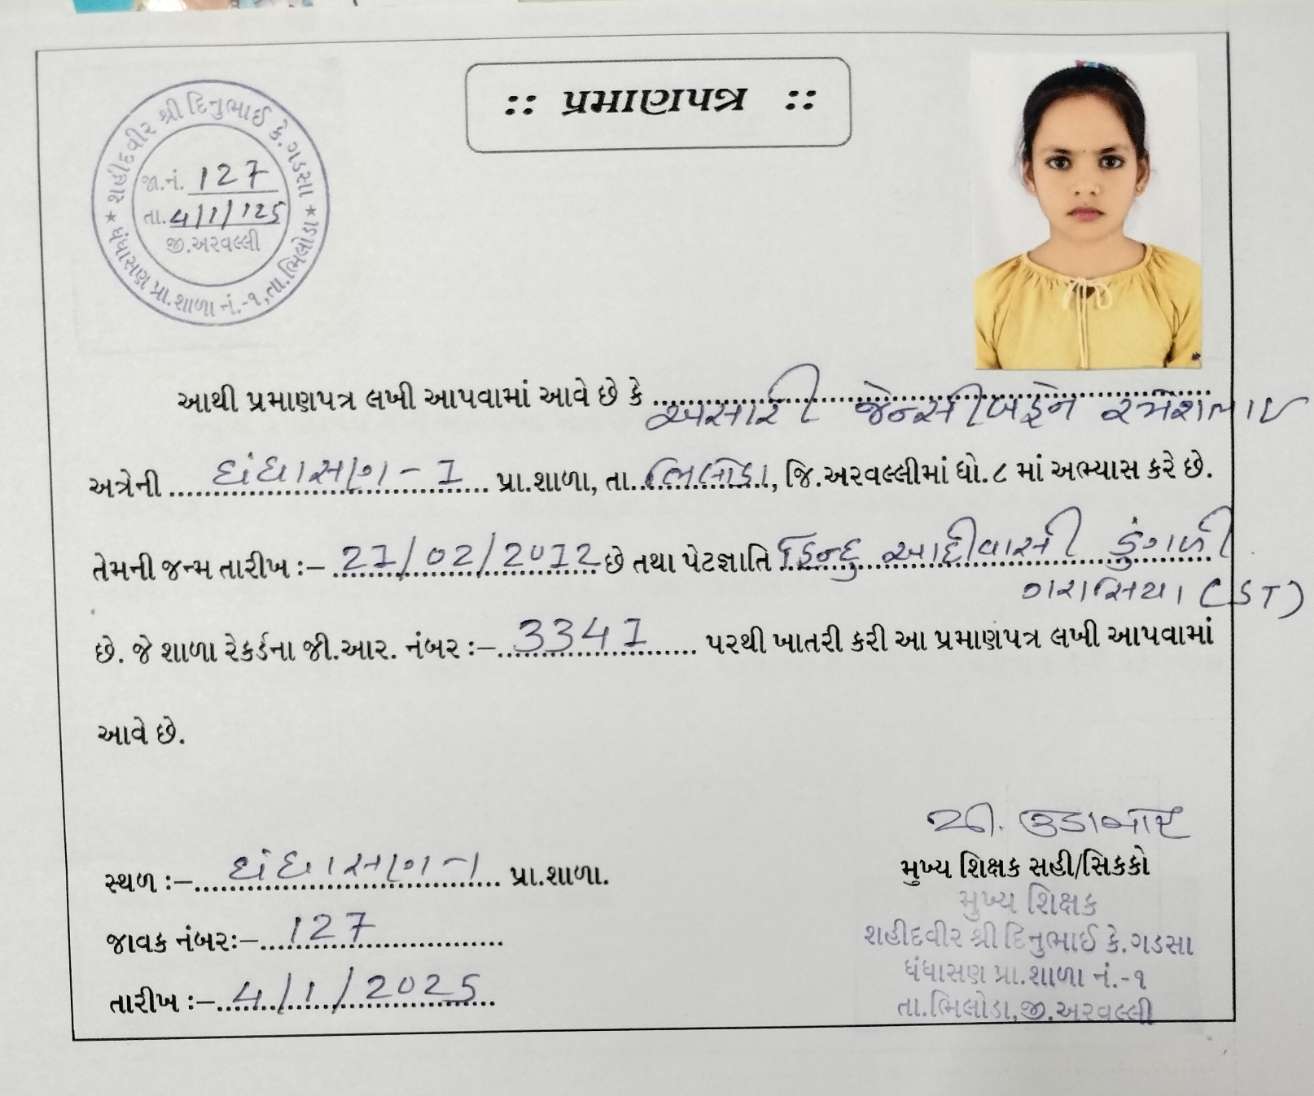 :: પ્રમાણપત્ર ::
શહીદવીર શ્રી દિનુભાઈ કે. ગડસા
જા.નં. 127
તા. 4/1/125
જી.અરવલ્લી
* ધંધાસણ પ્રા.શાળા નં.-૧, તા.ભિલોડા *
આથી પ્રમાણપત્ર લખી આપવામાં આવે છે કે અસારી જેન્સીબહેન રમેશભાઇ
અત્રેની ધંધાસણ - 1 પ્રા.શાળા, તા. ભિલોડા, જિ.અરવલ્લીમાં ધો.૮ માં અભ્યાસ કરે છે.
તેમની જન્મ તારીખ :- 27/02/2012 છે તથા પેટજ્ઞાતિ હિન્દુ આદીવાસી ડુંગળી
ગરાસિયા (ST)
છે. જે શાળા રેકર્ડના જી.આર. નંબર :- 3341 પરથી ખાતરી કરી આ પ્રમાણપત્ર લખી આપવામાં
આવે છે.
સ્થળ :- ધંધાસણ-1 પ્રા.શાળા.
જાવક નંબર:- 127
તારીખ :- 4/1/2025
મુખ્ય શિક્ષક સહી/સિકકો
મુખ્ય શિક્ષક
શહીદવીર શ્રી દિનુભાઈ કે.ગડસા
ધંધાસણ પ્રા.શાળા નં.-૧
તા.ભિલોડા,જી.અરવલ્લી